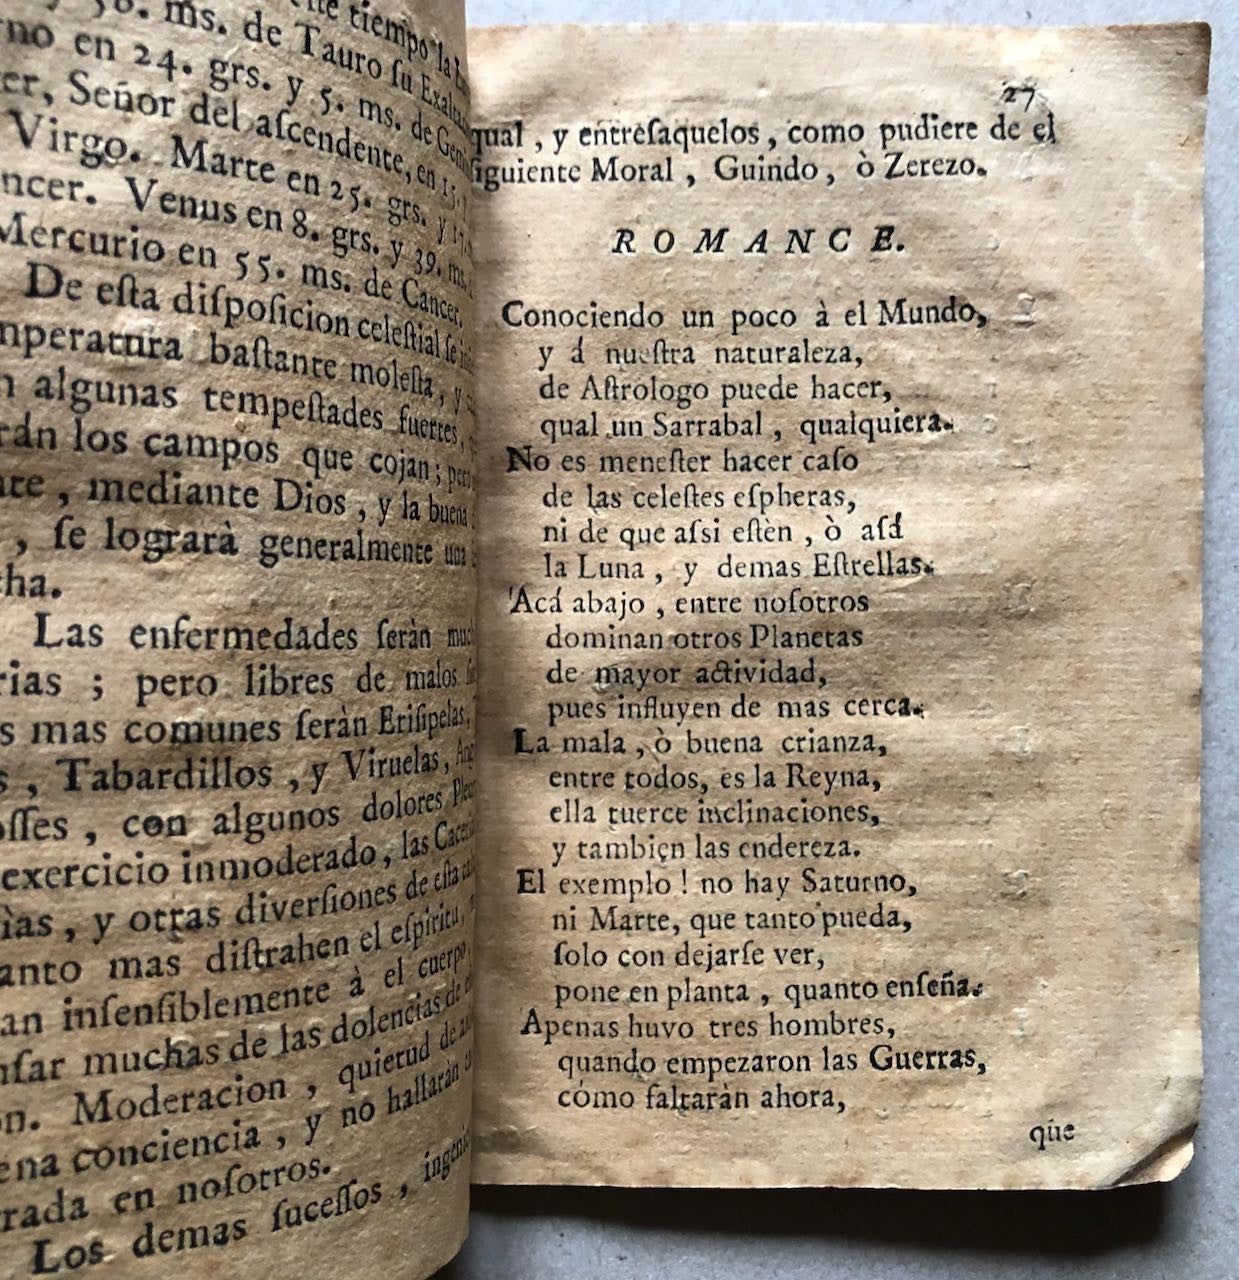 este tiempo la
58. ms. de Tauro su
en 24. grs. y 5. ms. de
Señor del ascendente, en 15.
Virgo. Marte en 25. grs. y 17.
Venus en 8. grs. y 39. ms.
Mercurio en 55. ms. de Cancer.
De esta disposicion celestial se
bastante molesta, y
algunas tempestades fuertes,
los campos que cojan; pero
, mediante Dios, y la buena
, se lograrà generalmente una
Las enfermedades seràn
; pero libres de malos
mas comunes seràn Erisipelas,
, Tabardillos, y Viruelas,
, con algunos dolores
exercicio inmoderado, las
, y otras diversiones de esta
mas distrahen el espiritu,
insensiblemente à el cuerpo,
muchas de las dolencias de
Moderacion, quietud de
conciencia, y no hallaràn
en nosotros.
Los demas sucessos,
27
qual, y entresaquelos, como pudiere de el
siguiente Moral, Guindo, ò Zerezo.
ROMANCE.
Conociendo un poco à el Mundo,
y á nuestra naturaleza,
de Astrologo puede hacer,
qual un Sarrabal, qualquiera.
No es menester hacer caso
de las celestes espheras,
ni de que assi estèn, ò asá
la Luna, y demas Estrellas.
Acá abajo, entre nosotros
dominan otros Planetas
de mayor actividad,
pues influyen de mas cerca.
La mala, ò buena crianza,
entre todos, es la Reyna,
ella tuerce inclinaciones,
y tambien las endereza.
El exemplo! no hay Saturno,
ni Marte, que tanto pueda,
solo con dejarse ver,
pone en planta, quanto enseña.
Apenas huvo tres hombres,
quando empezaron las Guerras,
còmo faltaràn ahora,
que